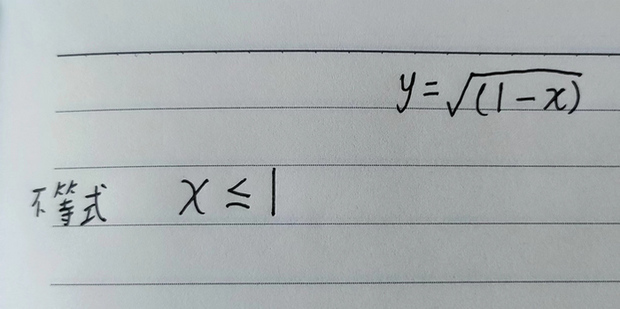 y=√(1-x)
不等式 x≤1